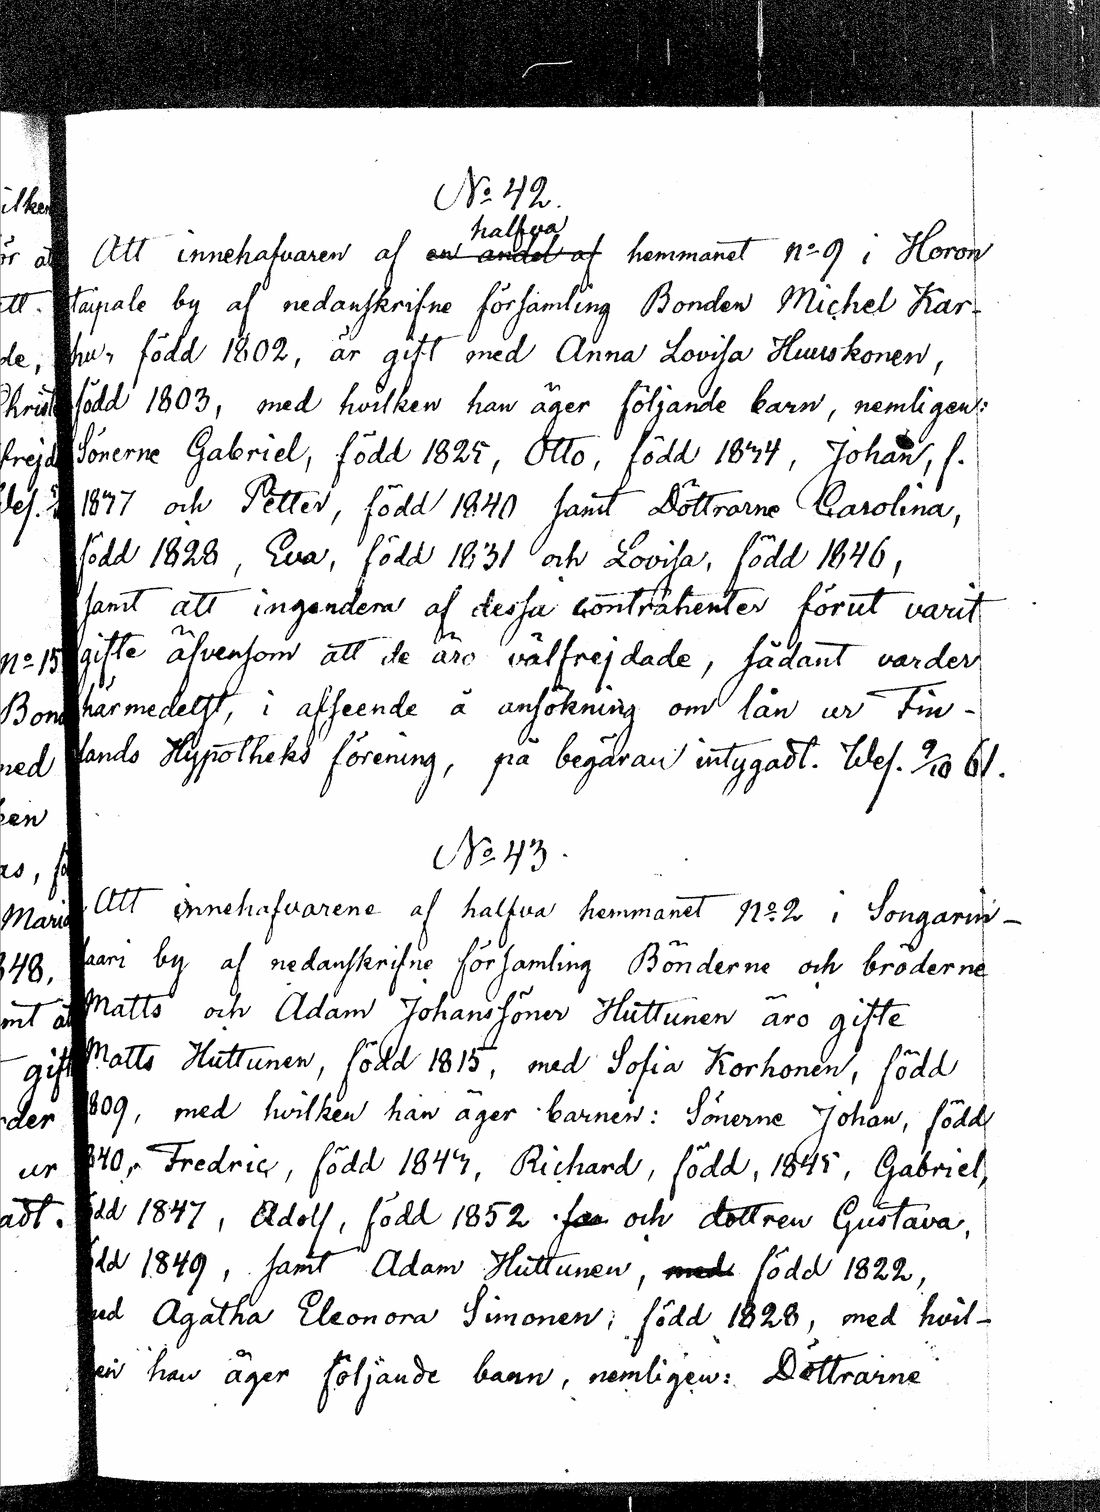 No 42.
halfva
Att innehafvaren af en andel af hemmanet no 9 i Horon
taipale by af nedanskrifne församling Bonden Michel Kar-
hu, född 1802, är gift med Anna Lovisa Huuskonen,
född 1803, med hvilken han äger följande barn, nemligen:
Sönerne Gabriel, född 1825, Otto, född 1834, Johan, f.
1837 och Petter, född 1840 samt Döttrarne Carolina,
född 1828, Eva, född 1831 och Lovisa, född 1846,
samt att ingendera af dessa contrahenter förut varit
gifte äfvensom att de äro välfrejdade, sådant varder
härmedelst, i afseende å ansökning om lån ur Fin-
lands Hypotheks förening, på begäran intygadt. Wes. 9/10 61.
No 43.
Att innehafvarene af halfva hemmanet No 2 i Songarin-
saari by af nedanskrifne församling Bönderne och bröderne
Matts och Adam Johanssöner Huttunen äro gifte
Matts Huttunen, född 1815, med Sofia Korhonen, född
1809, med hvilken han äger barnen: Sönerne Johan, född
1840, Fredric, född 1843, Richard, född, 1845, Gabriel,
född 1847, Adolf, född 1852 sa och dottren Gustava,
född 1849, samt Adam Huttunen, med född 1822,
med Agatha Eleonora Simonen, född 1828, med hvil-
ken han äger följande barn, nemligen: Döttrarne